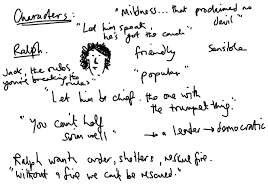 Characters:
"Mildness... that proclaimed no devil"
"Let him speak, he's got the conch"
Ralph
friendly
Sensible
Jack, the rules, you're breaking the rules
"popular"
"Let him be chief. the one with the trumpet thing."
"You can't half swim well"
→ a leader → democratic
Ralph wants order, shelters, rescue fire.
"without a fire we can't be rescued."